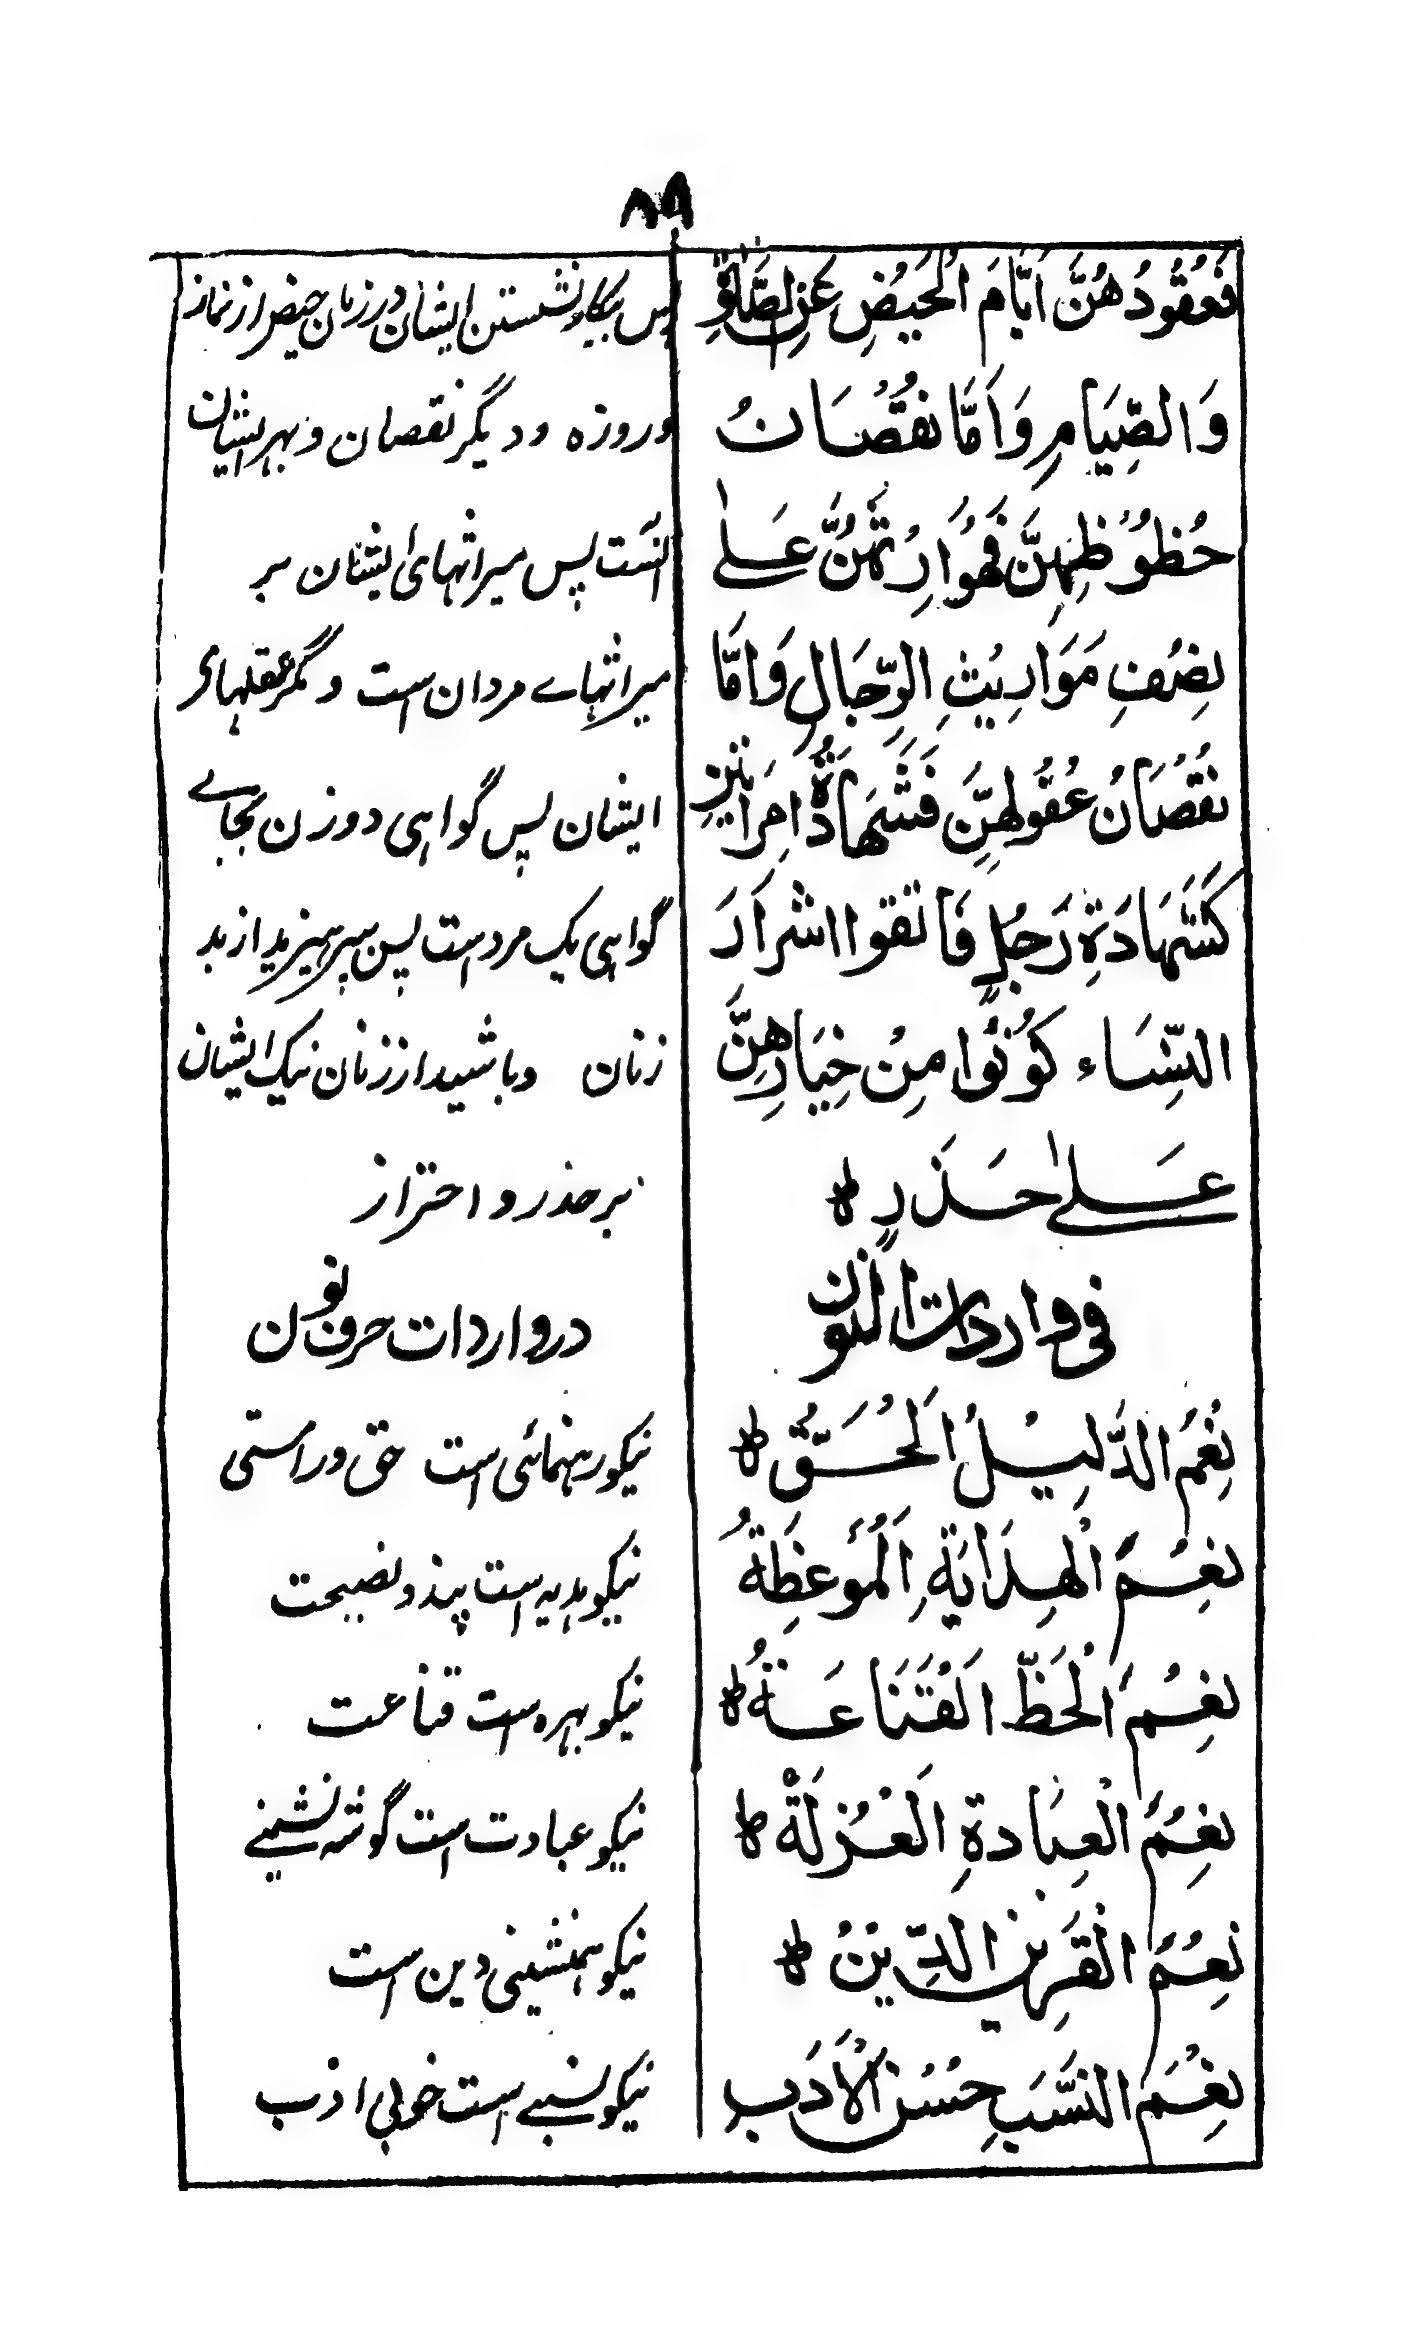 ۸۹
فَعُقُودُهُنَّ اَيَّامَ الْحَيْضِ عَنِ الصَّلٰوةِ
پس بنگاه نشستن ایشان در زمان حیض از نماز
وَالصِّيَامِ وَاَمَّا نُقْصَانُ
وروزه ودیگر نقصان وبهر ایشان
حُظُوْظِهِنَّ فَهُوَ اِرْثُهُنَّ عَلٰے
آنست پس میراثهائ ایشان بر
نِصْفِ مَوَارِيْثِ الرِّجَالِ وَاَمَّا
میراثهاے مردان ست ومگر عقلهای
نُقْصَانُ عُقُوْلِهِنَّ فَشَهَادَةُ امْرَاَتَيْنِ
ایشان پس گواهی دوزن بجاے
كَشَهَادَةِ رَجُلٍ فَاتقوا اشرَارَ
گواهی یک مردست پس بپرهیزید از بد
النِّسَاء كُوْنُوْا مِنْ خِيَارِهِنَّ
زنان وباشید از زنان نیک ایشان
عَلٰے حَذَرٍ ط
بر حذر و احتراز
فی واردات النون
در واردات حرف نون
نِعْمَ الدَّلِيْلُ الْحَقُّ ط
نیکو رهنمائی است حق وراستی
نِعْمَ الْهِدَايَةِ الْمَوْعِظَةُ
نیکو هدیه است پند ونصیحت
نِعْمَ الْحَظّ الْقَنَاعَةُ ط
نیکو بهره ست قناعت
نِعْمَ الْعِبَادةِ الْعُزْلَةْ ط
نیکو عبادت ست گوشه نشینے
نِعْمَ الْقَرِيْن الدِّيْنُ ط
نیکو همنشینی دین است
نِعْمَ النَّسَبِ حُسْنُ الْاَدَبِ
نیکو نسبے است خوبی ادب